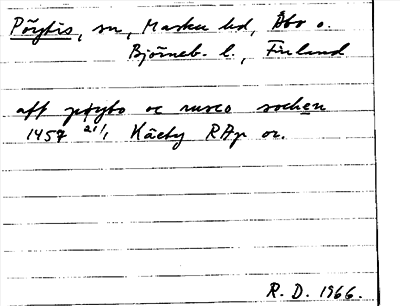 Pöytis, sn, Masku hd, Åbo o.
Björneb. l., Finland
aff pøybo oc rusco sochen
1457 21/1 Käcty RAp or.
R. D. 1966.